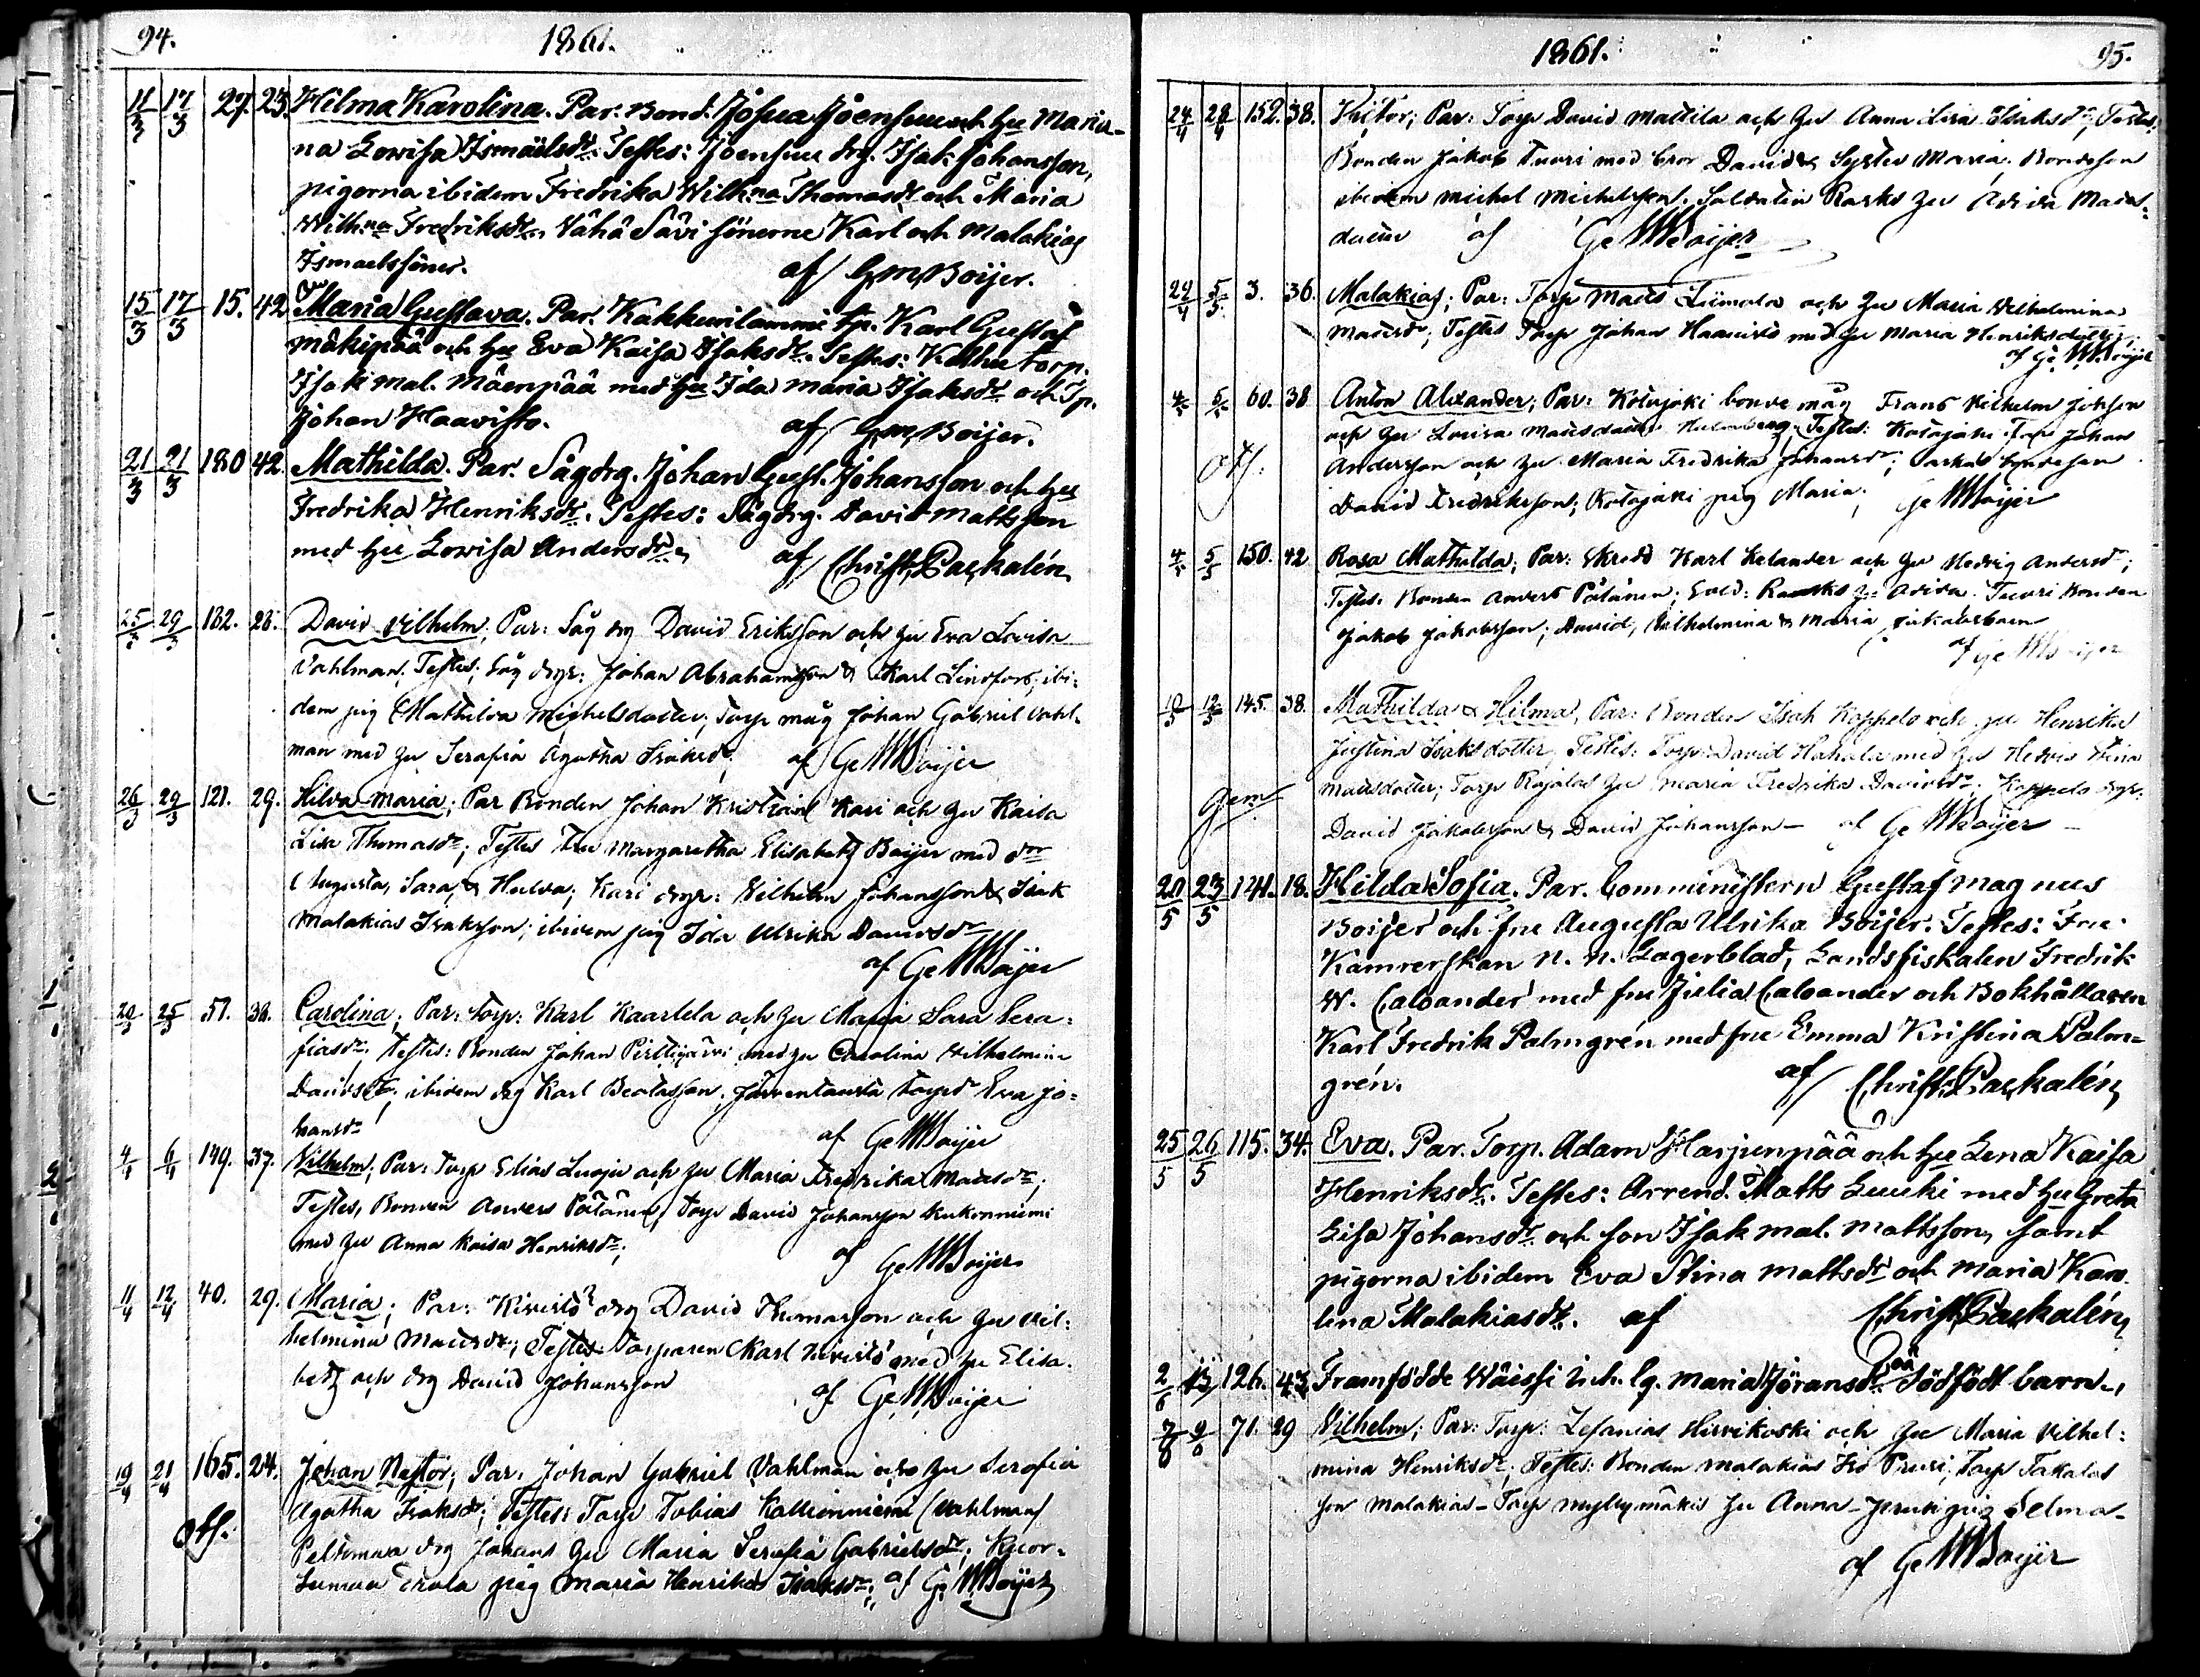 94. 1861.
11/3 17/3 27. 23. Hilma Karolina. Par. Bond. Josua Joensuu och hu Maria-
na Lowisa Ismaelsdr. Testes: Joensuu drg. Isak Johansson,
pigorna ibidem Fredrika Wilh:na Thomasdr och Maria
Wilh:na Fredriksdr, Vähä Sävi sönerne Karl och Malakias
Ismaelssöner. af G.M. Boijer.
15/3 17/3 15. 42 Maria Gustava. Par. Kakkurilammi tp. Karl Gustaf
Mäkipää och hu Eva Kaisa Isaksdr. Testes: Ketku torp.
Isak Mal. Mäenpää med hu Ida Maria Isaksdr och Tp.
Johan Haavisto. af G.M. Boijer.
21/3 21/3 180 42. Mathilda. Par. Sågdrg. Johan Gust. Johansson och hu
Fredrika Henriksdr. Testes: Sågdrg. David Mattsson
med hu Lowisa Andersdr. af Christ. Paskalén
25/3 29/3 182. 28. David Vilhelm; Par: Såg drg David Eriksson och hu Eva Lovisa
Vahlman; Testes: Såg drgr: Johan Abrahamsson & Karl Lindfors, ibi:
dem pig Mathilda Michelsdotter; Torp måg Johan Gabriel Vahl-
man med hu Serafia Agatha Isaksdr; af G.M. Boijer
26/3 29/3 121. 29. Hilda Maria; Par Bonden Johan Kristian Kari och hu Kaisa
Lisa Thomasdr; Testes Fru Margaretha Elisabeth Boijer med dr
Augusta, Sara, & Hulda; Kari drgr: Vilhelm Johansson & Isak
Malakias Isaksson; ibidem pig Ida Ulrika Davidsdr
af G.M. Boijer
20/3 25/3 51. 38. Carolina; Par: torp: Karl Kaartela och hu Maja Sara Sera:
fiasdr; Testes: Bonden Johan Pirttijärvi med hu Carolina Vilhelmina
Davidsdr, ibidem drg Karl Beatasson, Järventausta torpdr Eva Jo:
hansdr af G.M. Boijer
4/4 6/4 149. 37. Vilhelm; Par: Torp Elias Luoju och hu Maria Fredrika Matsdr;
Testes, Bonden Anders Pätänen, torp David Johansson Kukonniemi
med hu Anna Kaisa Henriksdr; af G.M. Boijer
11/4 12/4 40. 29. Maria; Par: Kivistö drg David Thomasson och hu Vil:
helmina Matsdr; Testes Torparen Karl Kivistö med hu Elisa-
beth och drg David Johansson af G.M. Boijer
19/4 21/4 165. 24. Johan Nestor; Par: Johan Gabriel Vahlman och hu Serafia
Agatha Isaksdr; Testes: Torp Tobias Kallionniemi (Vahlman)
Peltomaa drg Johans hu Maria Serafia Gabrielsdr; Kuor-
pig Maria Henrika Isaksdr; af G.M. Boijer
1861. 95.
24/4 28/4 152. 38. Victor; Par: Torp David Mattila och hu Anna Lisa Isaksdr; Testes,
Bonden Jakob Tuori med bror David & Syster Maria. Bondeson
ibidem Michel Michelsson. Soldaten Rasks hu Adriva Mats-
dotter af G.M. Boijer
29/4 5/5 3. 36. Malakias; Par: Torp Mats Liimola och hu Maria Vilhelmina
Matsdr; Testes Torp Johan Haavisto med hu Maria Henriksdotter;
af G.M. Boijer
4/5 5/5 60. 38 Anton Alexander; Par: Kotajoki bonde måg Frans Vilhelm Johsson
och hu Lovisa Matsdotter; Testes: Kotajoki Torp Johan
Andersson och hu Maria Fredrika Johansdr; bondeson
David Fredriksson; Kotajoki pig Maria; G.M. Boijer
4/5 5/5 150. 42 Rosa Mathilda; Par: Skredd Karl Helander och hu Hedvig Andersdr;
Testes: Bonden Anders Pätänen; Sold: Rasks hu Adriva. Tuori Bonden
Jakob Jakobsson; David, Vilhelmina & Maria Jakobsbarn
af G.M. Boijer
12/5 145. 38. Mathilda & Hilma, Par: Bonden Isak Koppelo och hu Henrika
Justina Isaksdotter, Testes: Torp David Hahala med hu Hedvig Stina
Matsdotter; Torp Rajalas hu Maria Fredrika Davidsdr; Koppelo drgr:
Gem David Jakobsson & David Johansson – af G.M. Boijer –
20/5 23/5 141. 18. Hilda Sofia. Par. Comministern Gustaf Magnus
Boijer och fru Augusta Ulrika Boijer. Testes: Fru
Kamrerskan N. N. Lagerblad, Landsfiskalen Fredrik
W. Caloander med fru Julia Caloander och Bokhållaren
Karl Fredrik Palmgrén med fru Emma Kristina Palm-
grén. af Christ. Paskalén
25/5 26/5 115. 34. Eva. Par. Torp. Adam Harjunpää och hu Lena Kaisa
Henriksdr. Testes: Arrend. Matts Luuki med hu Greta
Lisa Johansdr och son Isak Mal. Mattsson, samt
pigorna ibidem Eva Stina Mattsdr och Maria Karo-
lina Malakiasdr. af Christ. Paskalén
2/6 126. 43. Framfödde Wäissi inh. lg. Maria Göransdr. oä dödfödt barn.
7/6 9/6 71. 29 Vilhelm; Par: Torp: Zefanias Hirvikoski och hu Maria Vilhel:
mina Henriksdr; Testes: Bonden Malakias Iso Pruri, Torp Takalas
son Malakias – Torp Myllymäkis hu Anna – pig Selma –
af G.M. Boijer